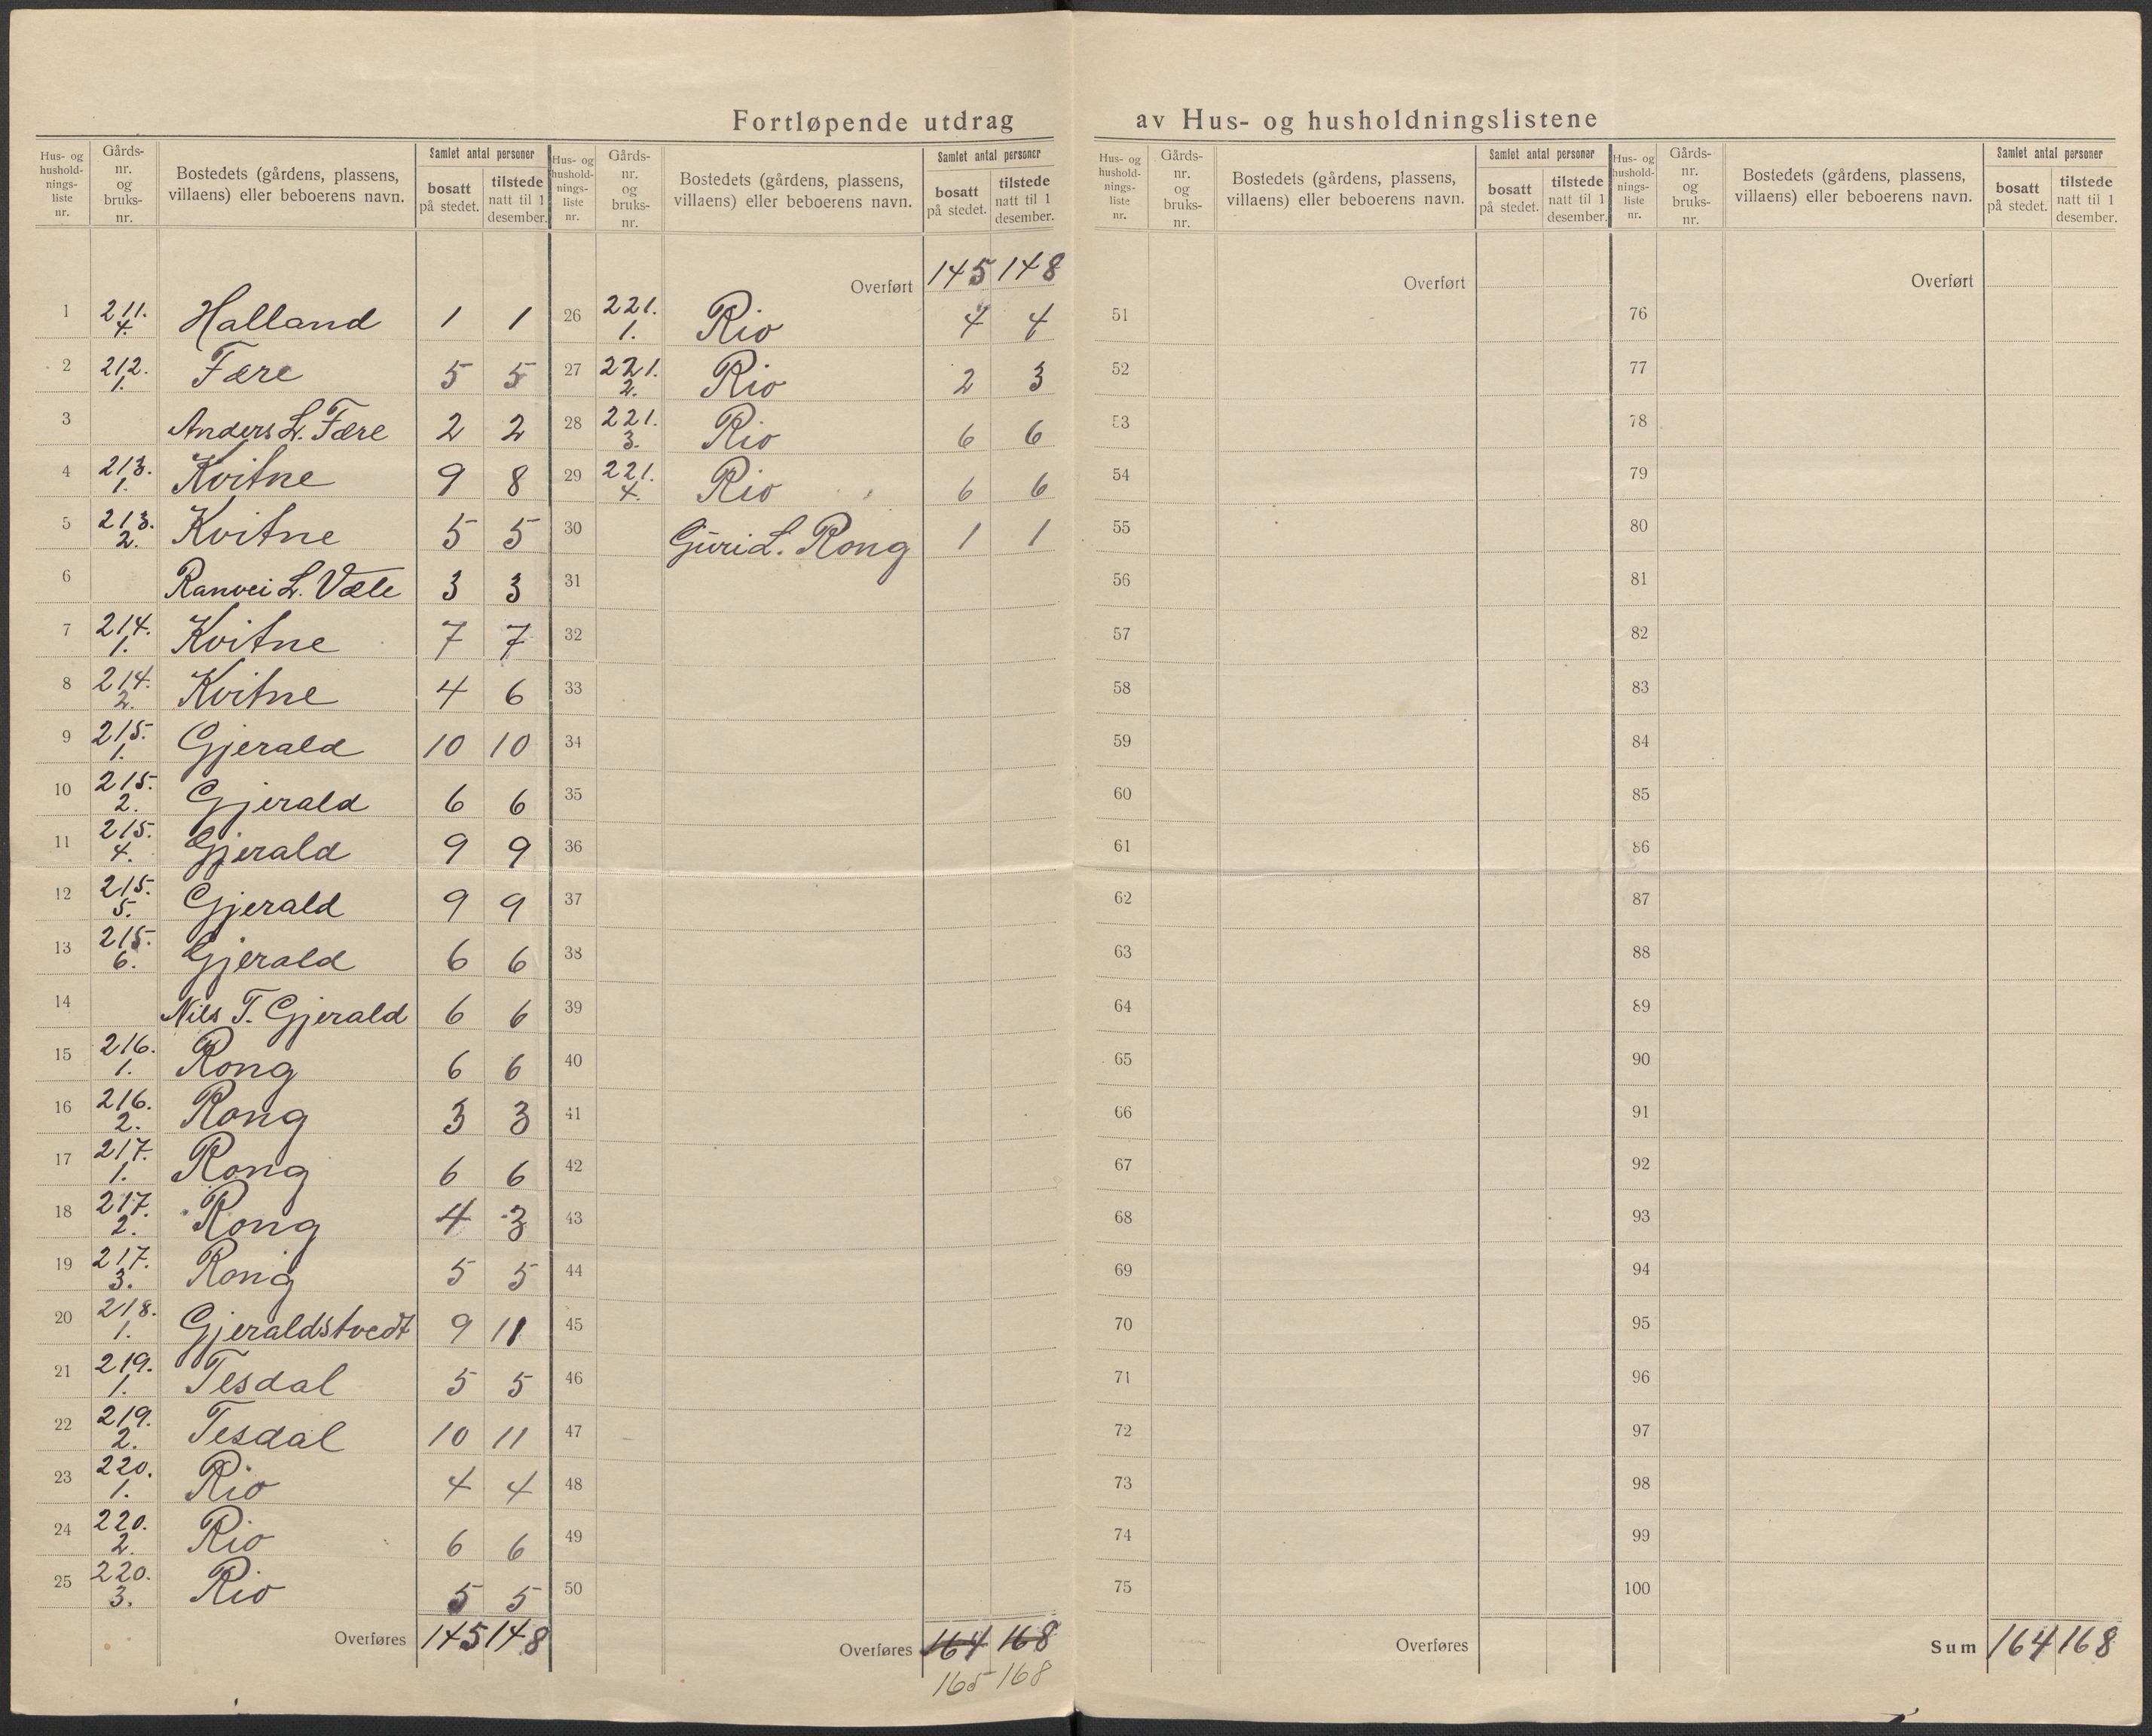 Fortløpende utdrag av Hus- og husholdningslistene
Hus- og hushold-nings-liste nr. Gårds-nr. og bruks-nr. Bostedets (gårdens, plassens, villaens) eller beboerens navn. Samlet antal personer bosatt på stedet. tilstede natt til 1 desember.
1 211. 4. Halland 1 1
2 212. 1. Fære 5 5
3 Anders L. Fære 2 2
4 213. 1. Kvitne 9 8
5 213. 2. Kvitne 5 5
6 Ranvei L. Væle 3 3
7 214. 1. Kvitne 7 7
8 214. 2. Kvitne 4 6
9 215. 1. Gjerald 10 10
10 215. 2. Gjerald 6 6
11 215. 4. Gjerald 9 9
12 215. 5. Gjerald 9 9
13 215. 6. Gjerald 6 6
14 Nils T. Gjerald 6 6
15 216. 1. Rong 6 6
16 216. 2. Rong 3 3
17 217. 1. Rong 6 6
18 217. 2. Rong 4 3
19 217. 3. Rong 5 5
20 218. 1. Gjeraldstvedt 9 11
21 219. 1. Tesdal 5 5
22 219. 2. Tesdal 10 11
23 220. 1. Rio 4 4
24 220. 2. Rio 6 6
25 220. 3. Rio 5 5
Overføres 145 148
Hus- og hushold-nings-liste nr. Gårds-nr. og bruks-nr. Bostedets (gårdens, plassens, villaens) eller beboerens navn. Samlet antal personer bosatt på stedet. tilstede natt til 1 desember.
Overført 145 148
26 221. 1. Rio 4 4
27 221. 2. Rio 2 3
28 221. 3. Rio 6 6
29 221. 4. Rio 6 6
30 Guri L. Rong 1 1
31
32
33
34
35
36
37
38
39
40
41
42
43
44
45
46
47
48
49
50
Overføres 164 168
165 168
Hus- og hushold-nings-liste nr. Gårds-nr. og bruks-nr. Bostedets (gårdens, plassens, villaens) eller beboerens navn. Samlet antal personer bosatt på stedet. tilstede natt til 1 desember.
Overført
51
52
53
54
55
56
57
58
59
60
61
62
63
64
65
66
67
68
69
70
71
72
73
74
75
Overføres
Hus- og hushold-nings-liste nr. Gårds-nr. og bruks-nr. Bostedets (gårdens, plassens, villaens) eller beboerens navn. Samlet antal personer bosatt på stedet. tilstede natt til 1 desember.
Overført
76
77
78
79
80
81
82
83
84
85
86
87
88
89
90
91
92
93
94
95
96
97
98
99
100
Sum 164 168